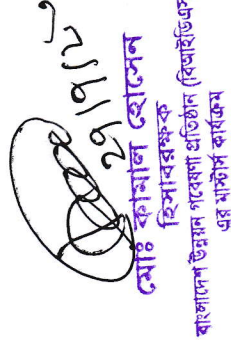 ২৭/৭/২১
মোঃ কামাল হোসেন
হিসাবরক্ষক
বাংলাদেশ উন্নয়ন গবেষণা প্রতিষ্ঠান (বিআইডিএস
এর মাস্টার্স কার্যক্রম